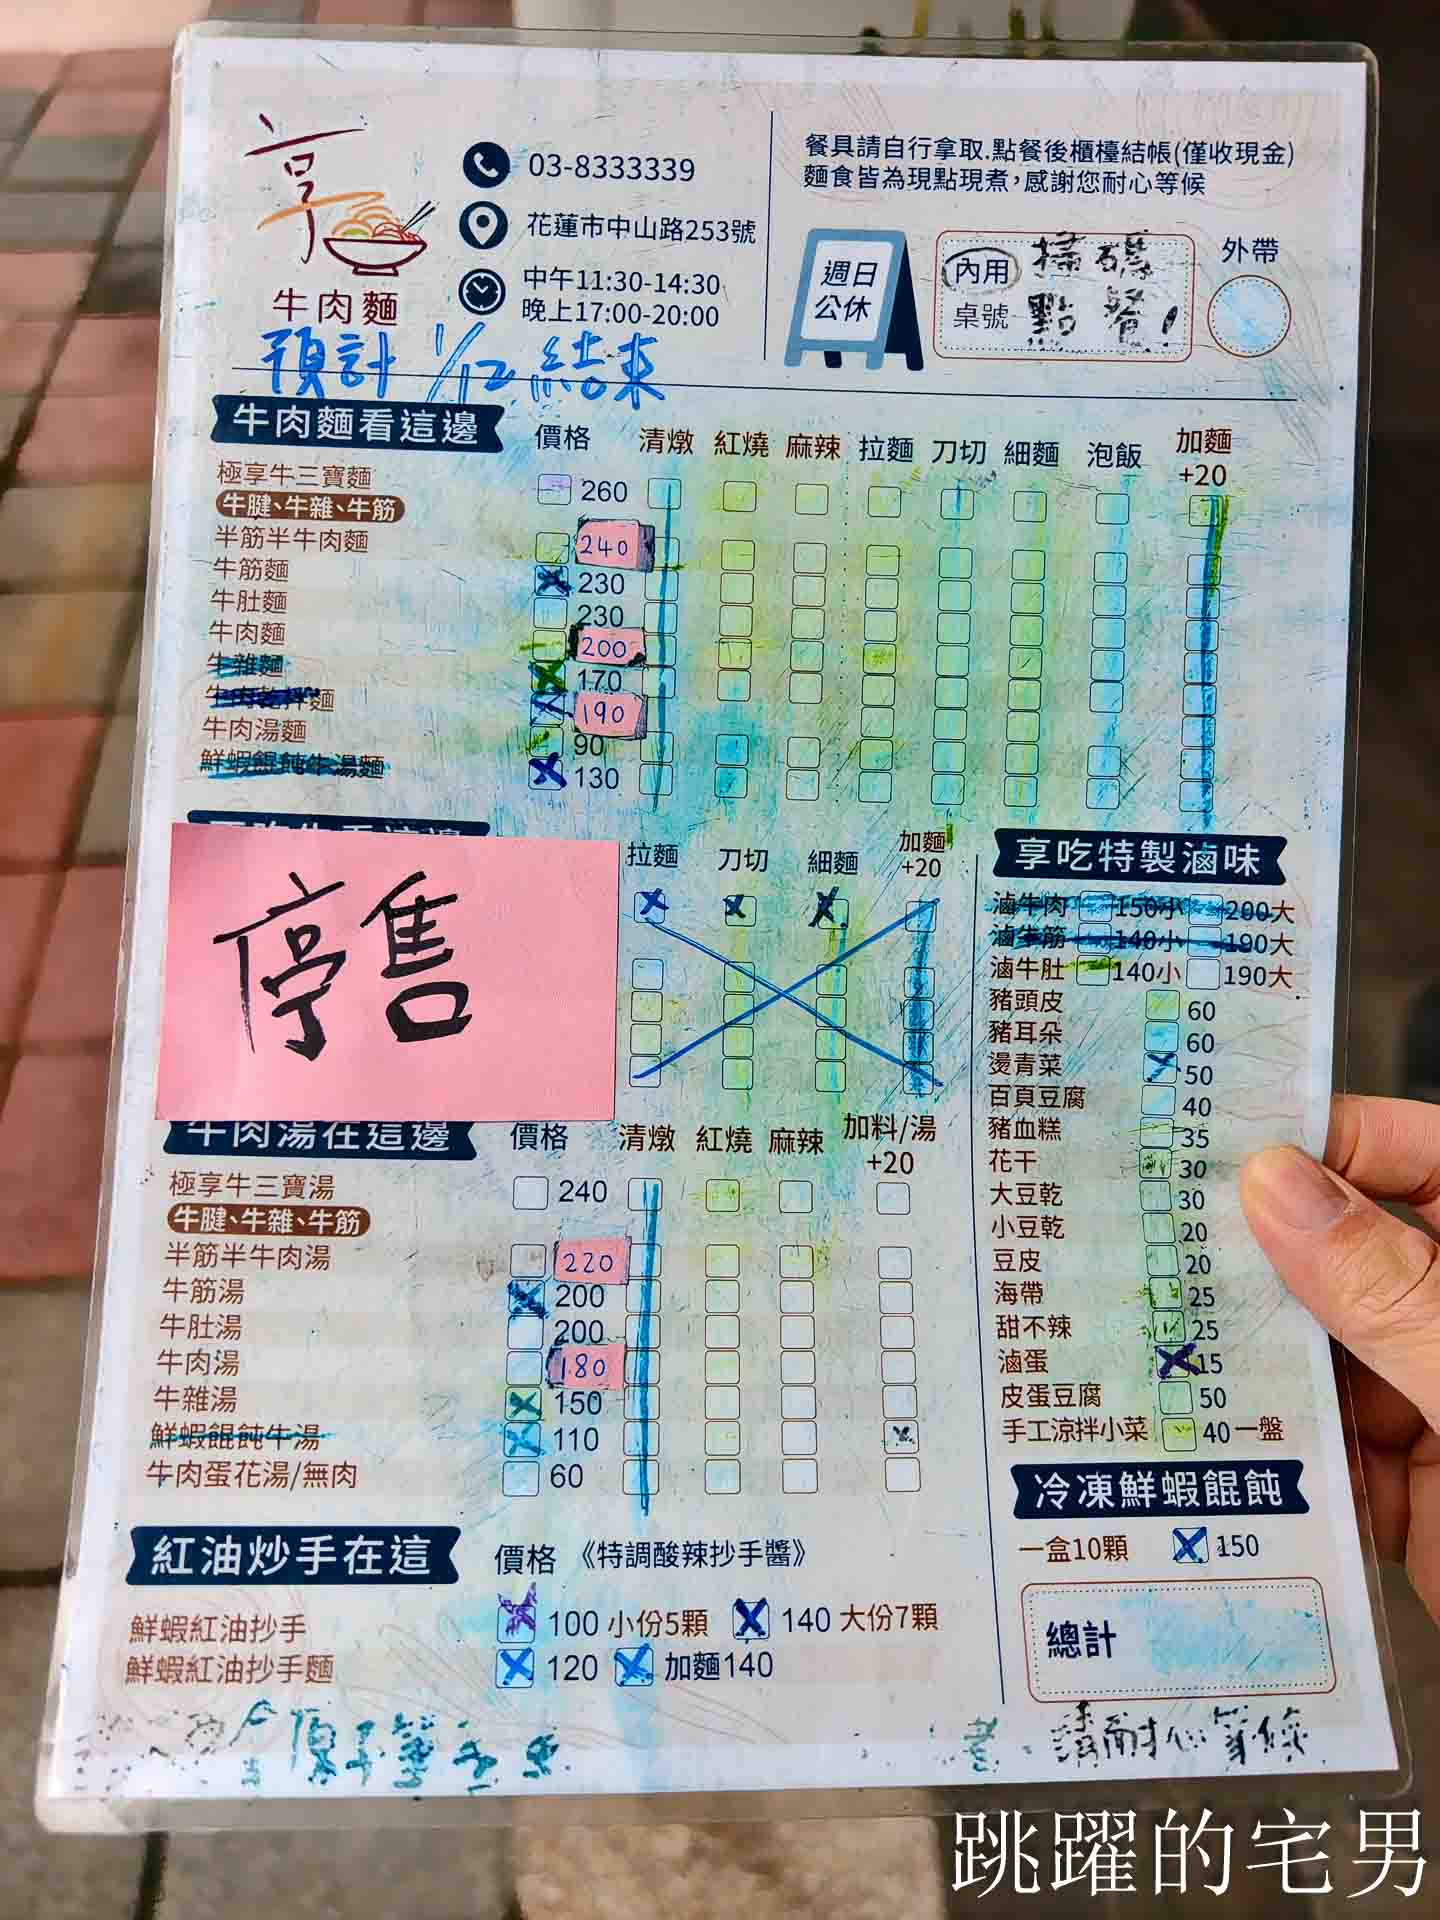 享
牛肉麵
03-8333339
花蓮市中山路253號
中午11:30-14:30
晚上17:00-20:00
餐具請自行拿取.點餐後櫃檯結帳(僅收現金)
麵食皆為現點現煮,感謝您耐心等候
週日
公休
內用
桌號
掃碼
點餐!
外帶
預計 1/12 結束
牛肉麵看這邊 價格 清燉 紅燒 麻辣 拉麵 刀切 細麵 泡飯 加麵 +20
極享牛三寶麵 260
牛腱、牛雜、牛筋
半筋半牛肉麵 240
牛筋麵 230
牛肚麵 230
牛肉麵 200
牛雜麵 170
牛肉乾拌麵 190
牛肉湯麵 90
鮮蝦餛飩牛湯麵 130
停售
拉麵 刀切 細麵 加麵 +20
牛肉湯在這邊 價格 清燉 紅燒 麻辣 加料/湯 +20
極享牛三寶湯 240
牛腱、牛雜、牛筋
半筋半牛肉湯 220
牛筋湯 200
牛肚湯 200
牛肉湯 180
牛雜湯 150
鮮蝦餛飩牛湯 110
牛肉蛋花湯/無肉 60
享吃特製滷味
滷牛肉 150小 200大
滷牛筋 140小 190大
滷牛肚 140小 190大
豬頭皮 60
豬耳朵 60
燙青菜 50
百頁豆腐 40
豬血糕 35
花干 30
大豆乾 30
小豆乾 20
豆皮 20
海帶 25
甜不辣 25
滷蛋 15
皮蛋豆腐 50
手工涼拌小菜 40一盤
冷凍鮮蝦餛飩
一盒10顆 150
總計
紅油炒手在這 價格 《特調酸辣抄手醬》
鮮蝦紅油抄手 100 小份5顆 140 大份7顆
鮮蝦紅油抄手麵 120 加麵140
請耐心等候
跳躍的宅男